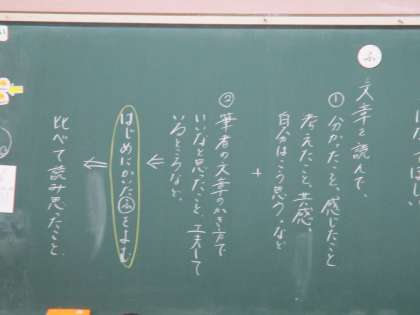 ふ
文章を読んで、
① 分かったこと、感じたこと
考えたこと、共感、
自分はこう思う、など
+
② 筆者の文章のかき方で
いいなと思ったこと、工夫して
いるところなど、
はじめにかいたふとよむ
比べて読み思ったこと